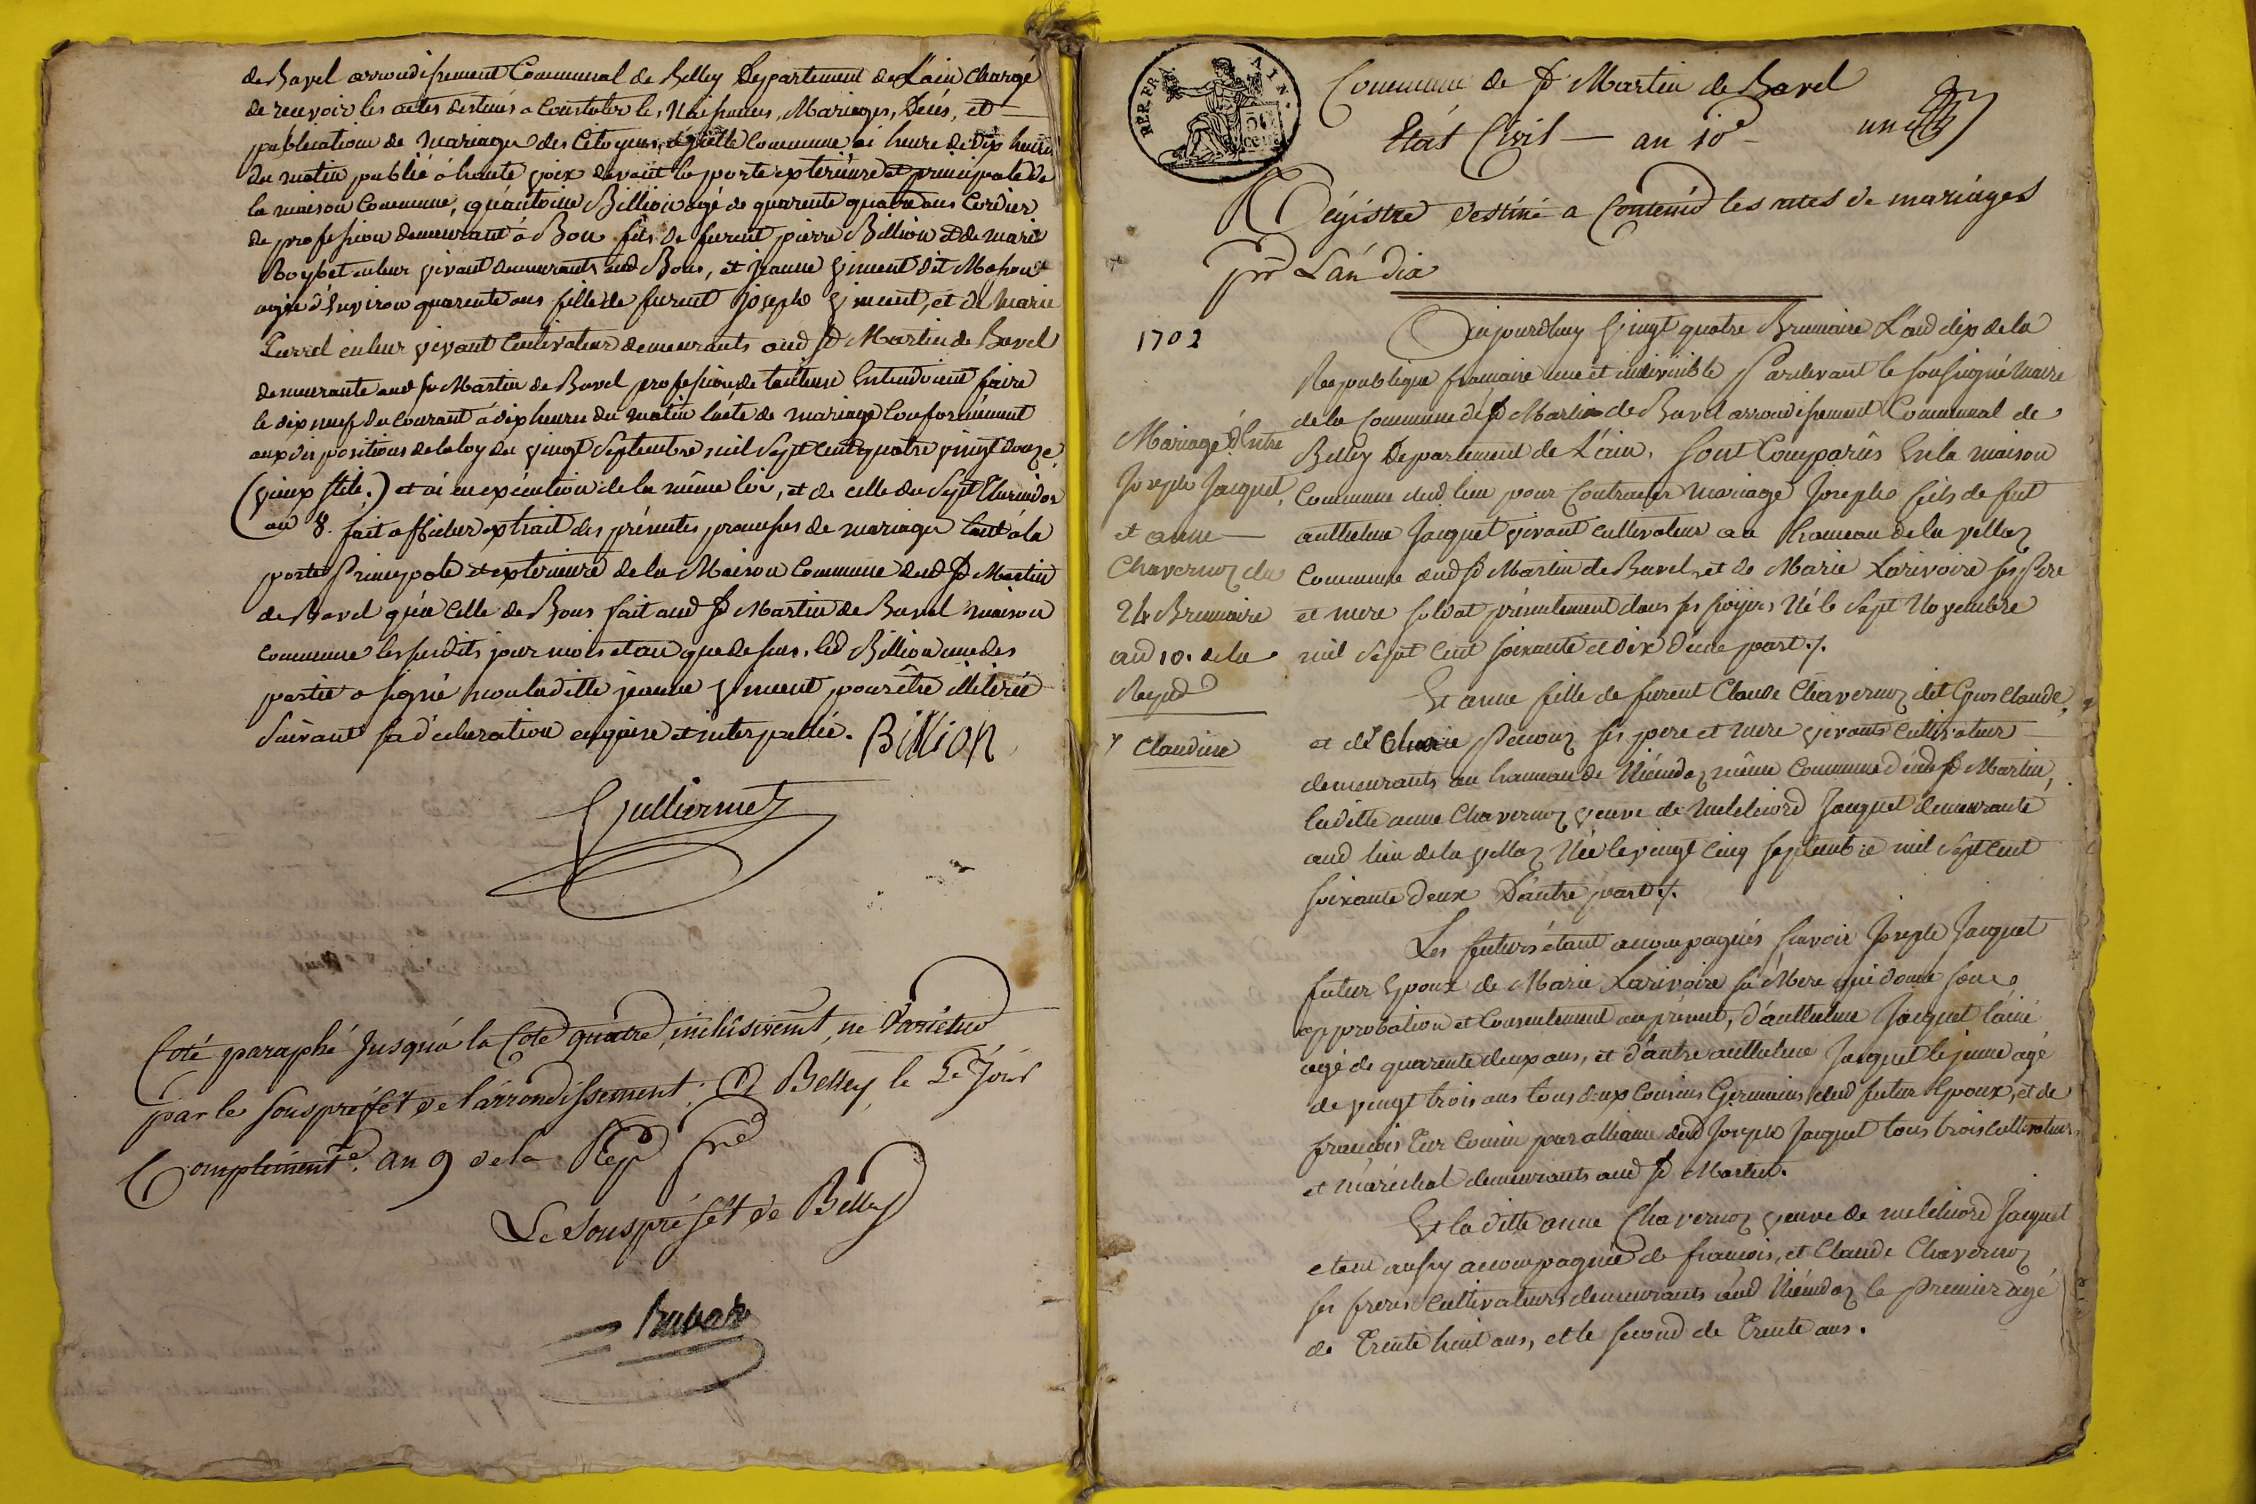 de Bavel arrondissement Communal de Belley Departement de L'ain Chargé
de recevoir les actes destinés a Constater les Naissances, Mariages, Décés, et
publication de mariage des Citoyens, de cette Commune ai heure de dix heures
du matin publié à haute voix devant la porte exterieure et principale de
la maison Commune, qu'antoine Billion agé de quarente quatre ans Cordier
de profession demeurant à Bon fils de furent pierre Billion et de marie
Roybet en leur vivant demeurants aud Bons, et jeanne vincent dit
agée d'environ quarente ans fille de furent joseph vincent, et de Marie
en leur vivant Cultivateur demeurants aud St Martin de Bavel
demeurante aud St Martin de Bavel profession de tailleuse Entendoient faire
le dix neuf du Courant à dix heures du matin l'acte de mariage Conformément
aux dispositions de la loy du vingt Septembre mil Sept Cent quatre vingt douze
(vieux stile.) et ai en exécution de la même loi, et de celle du Sept Thermidor
an 8. fait afficher extrait des présentes promesses de mariage tant à la
porte Principale et exterieure de la Maison Commune dud St Martin
de Bavel qu'a Celle de Bons fait aud St Martin de Bavel maison
Commune les susdits jour mois et an que dessus. led Billion une des
partie a signé non laditte jeanne vincent pour être illitérée
Suivant sa déclaration enquise et interpellée. Billion
Gulliermet
Coté paraphé jusqu'à la Cote quatre, inclusivemt, ne varietur
par le souspréfét de l'arrondissement. A Belley, le 5e jour
Complémente. an 9 de la Rep fre
Le souspréfét de Belley
Commune de St Martin de Bavel
REP. FRA. AIN.
50 CENT
Etat Civil — an 10e —
un
Régistre destiné a Contenir les actes de mariages
pr L'an dix
1702
Aujourdhuy vingt quatre Brumaire L'an dix de la
Republique francaise une et indivisible Pardevant le soussigné maire
de la Commune de St Martin de Bavel arrondissement Communal de
Belley Departement de L'ain, sont Comparûs En la maison
Commune dud lieu pour Contracter mariage Joseph fils de feu
anthelme Jacquet vivant cultivateur au hameau de la vellaz
Commune dud St Martin de Bavel, et de Marie Larivoire ses Pere
et mere soldat présentement dans ses foyers Né le Sept Novembre
mil Sept Cent soixante et dix d'une part ./.
Mariage d'Entre
Joseph Jacquet,
et anne —
Chavernoz du
24 Brumaire
an 10. de la
Repub
Et anne fille de furent Claude Chavernoz dit Gros Claude,
et de ses pere et mere vivants Cultivateur
y Claudine
demeurants au hameau de même Commune dud St Martin,
laditte anne Chavernoz veuve de melchiord Jacquet demeurante
aud lieu de la vellaz Née le vingt Cinq Septembre mil Sept Cent
soixante deux D'autre part ./.
Les futurs étant accompagnés scavoir Joseph Jacquet
futur Epoux de Marie Larivoire sa Mere qui donne son
approbation et Consentement au présent, d'anthelme Jacquet l'ainé
agé de quarente deux ans, et d'autre anthelme Jacquet le jeune agé
de vingt trois ans tous deux Cousins Germains dud futur Epoux, et de
francois Cousin par alliance dud Joseph Jacquet tous trois cultivateurs
et maréchal demeurants aud St Martin.
Et la ditte anne Chavernoz veuve de melchiord Jacquet
etant aussy accompagnée de francois, et Claude Chavernoz
ses freres Cultivateurs demeurants aud le Premier agé
de Trente huit ans, et le second de Trente ans.